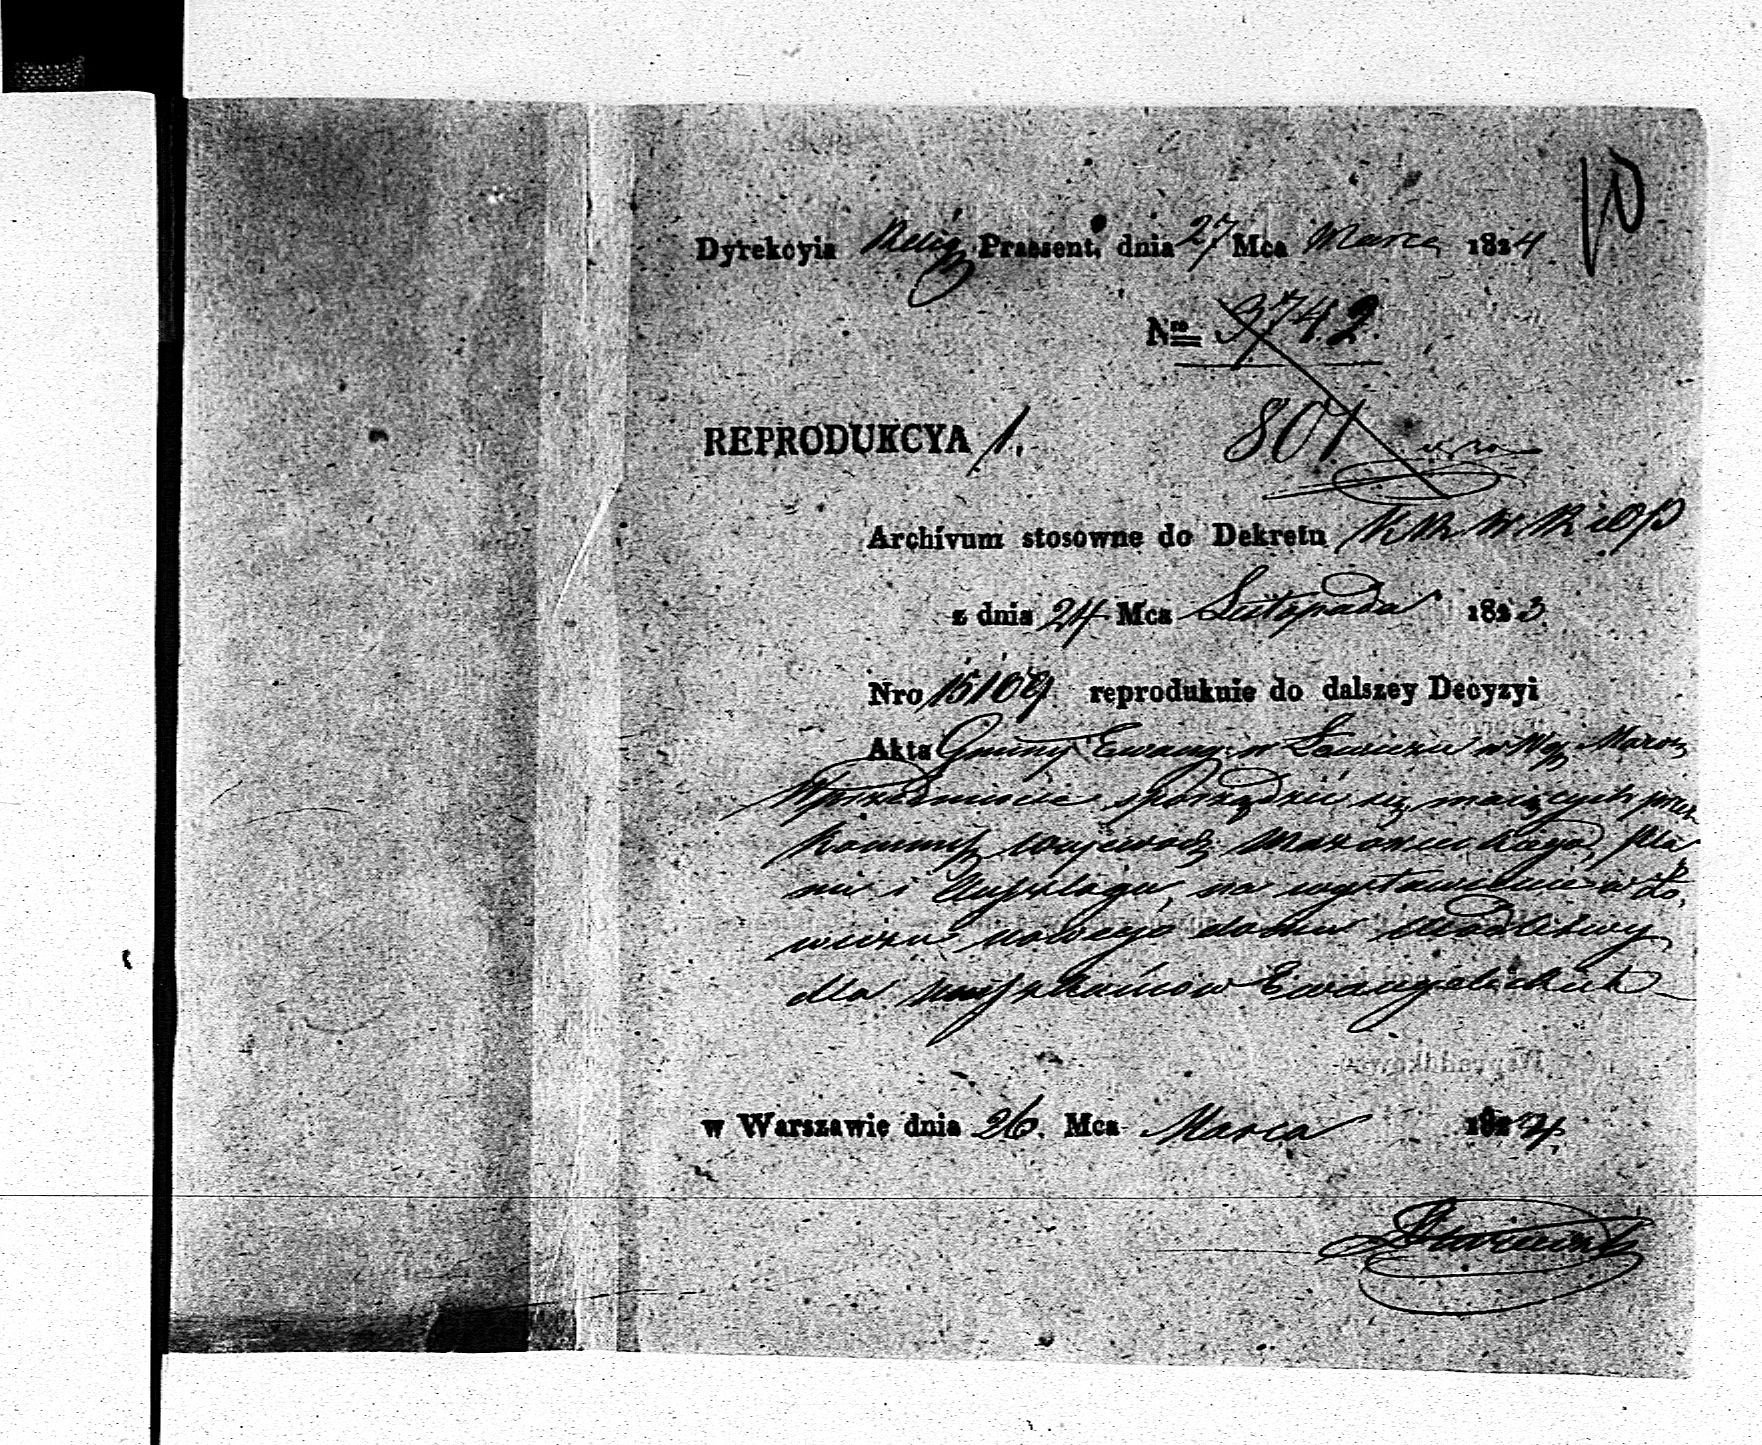 10
Dyrekcyia Relig Praesent. dnia 27 Mca Marca 1824
Nro 3742
REPRODUKCYA 1. 807
Archivum stosowne do Dekretu K R W R i O P
z dnia 24 Mca Listopada 1823.
Nro 15109 reprodukuie do dalszey Decyzyi
Akta Gminy Ewang: w Łowiczu w Wdz Mazow
W przedmiocie sporządzić się maiących przez
Kommiss Wojewodz Mazowieckiego, Pla
nu i Anszlagu, na wystawienie w Ło,
wiczu nowego domu Modlitwy
dla mieszkańców Ewangelickich
w Warszawie dnia 26. Mca Marca 1824.